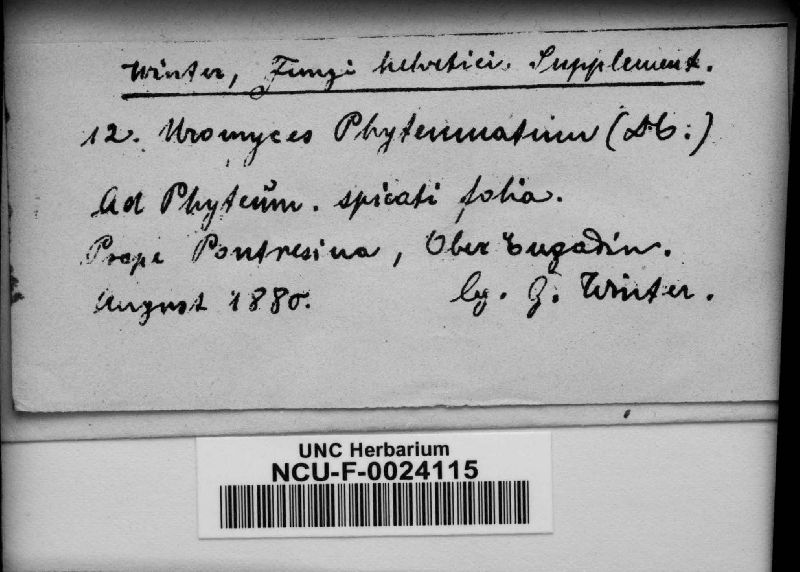 Winter, Fungi helvetici. Supplement.
12. Uromyces Phyteumatum (DC.)
Ad Phyteum. spicati folia.
Prope Pontresina, Ober Engadin.
August 1880. lg. G. Winter.
UNC Herbarium
NCU-F-0024115